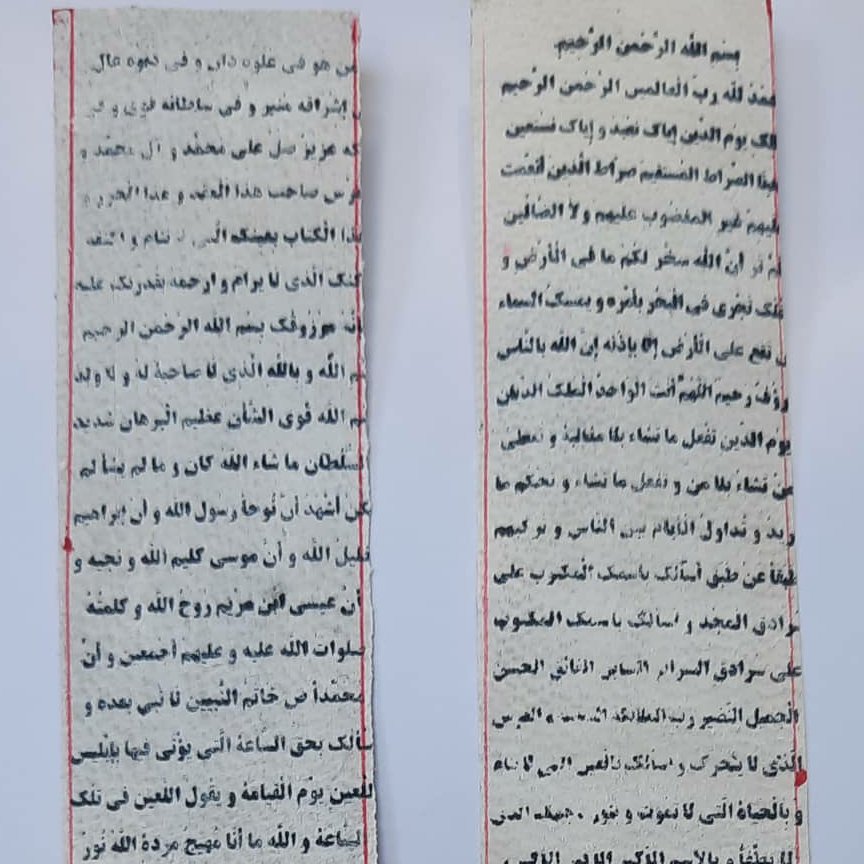 بسم الله الرحمن الرحيم
لله رب العالمين الرحمن الرحيم
يوم الدين إياك نعبد و إياك نستعين
الصراط المستقيم صراط الذين أنعمت
غير المغضوب عليهم ولا الضالين
تر أن الله سخر لكم ما في الأرض و
تجري في البحر بأمره و يمسك السماء
تقع على الأرض إلا بإذنه إن الله بالناس
رحيم اللهم أنت الواحد الملك الديان
يوم الدين تفعل ما تشاء بلا مغالبة و تعطي
من تشاء بلا من و تفعل ما تشاء و تحكم ما
و تداول الأيام بين الناس و تركبهم
طبقا عن طبق أسألك باسمك المكتوب على
سرادق المجد و أسألك باسمك المكتوب
على سرادق السرائر السابق الفائق الحسن
الجميل النضير رب الملائكة و العرش
الذي لا يتحرك و أسألك بالعين التي لا تنام
و بالحياة التي لا تموت و بنور
من هو في علوه دان و في دنوه عال
إشراقه منير و في سلطانه قوي و
عزيز صل على محمد و آل محمد و
صاحب هذا العقد و هذا الحرز و
الكتاب بعينك التي لا تنام و
الذي لا يرام و ارحمه بقدرتك عليه
مرزوقك بسم الله الرحمن الرحيم
الله و بالله الذي لا صاحبة له و لا ولد
الله قوي الشأن عظيم البرهان شديد
السلطان ما شاء الله كان و ما لم يشأ لم
أشهد أن نوحا رسول الله و أن إبراهيم
خليل الله و أن موسى كليم الله و نجيه و
أن عيسى ابن مريم روح الله و كلمته
صلوات الله عليه و عليهم أجمعين و أن
محمدا ص خاتم النبيين لا نبي بعده و
بحق الساعة التي يؤتى فيها بإبليس
اللعين يوم القيامة و يقول اللعين في تلك
الساعة و الله ما أنا مهيج مردة الله نور